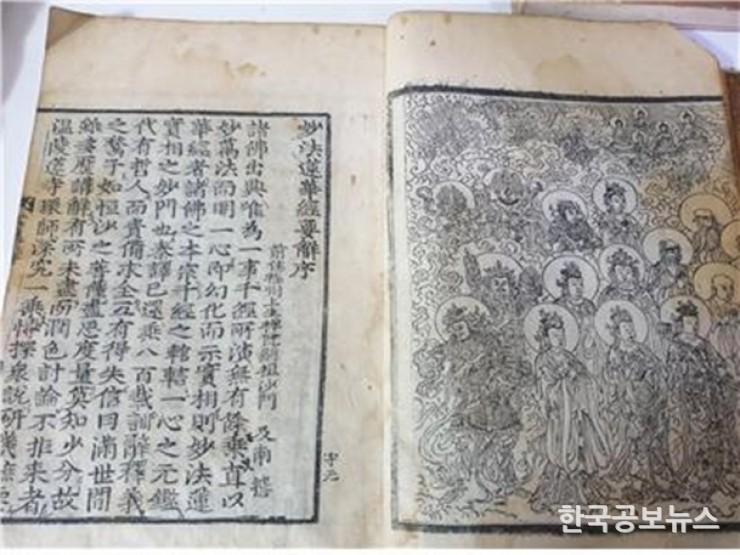 妙法蓮華經要解序
前住福州上生禪院嗣祖沙門 及南 撰
諸佛出興唯為一事千經所演無有餘乘直以
妙萬法而明一心即幻化而示實相則妙法蓮
華經者諸佛之本宗千經之輨轄一心之元鑑
實相之妙門也秦譯已還乘八百載訓解釋義
代有哲人而責備求全互有得失信曰滿世間
之鶖子如恒沙之菩薩盡思度量莫知少分故
雖屢歷講解有所未盡而潤色討論不拒來者
溫陵蓮寺環師深究一乘情探衆說研幾
한국공보뉴스